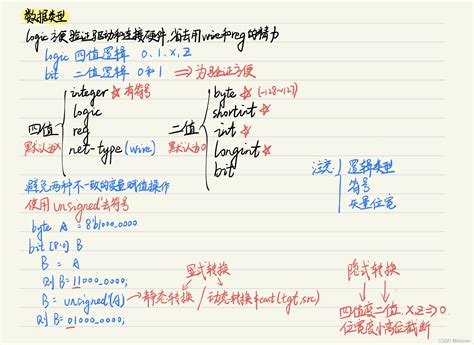 数据类型
logic 方便验证驱动和连接硬件,省去用wire和reg的精力
logic 四值逻辑 0、1、X、Z
bit 二值逻辑 0和1 ⇒ 为验证方便
integer ☆ 有符号
logic
reg
net-type (wire)
四值
默认认为X
byte ☆ (-128~127)
shortint ☆
int ☆
longint ☆
bit
二值
默认认为0
注意: 逻辑类型
符号
矢量位宽
避免两种不一致的变量赋值操作
使用unsigned'去符号
byte A = 8'b1000_0000
bit [8:0] B
B = A
则 B = 11000_0000;
B = unsigned'(A) → 静态转换 / 动态转换 $cast(tgt,src)
则 B = 01000_0000;
显式转换
隐式转换
四值变二值, X, Z ⇒ 0
位宽变小高位截断